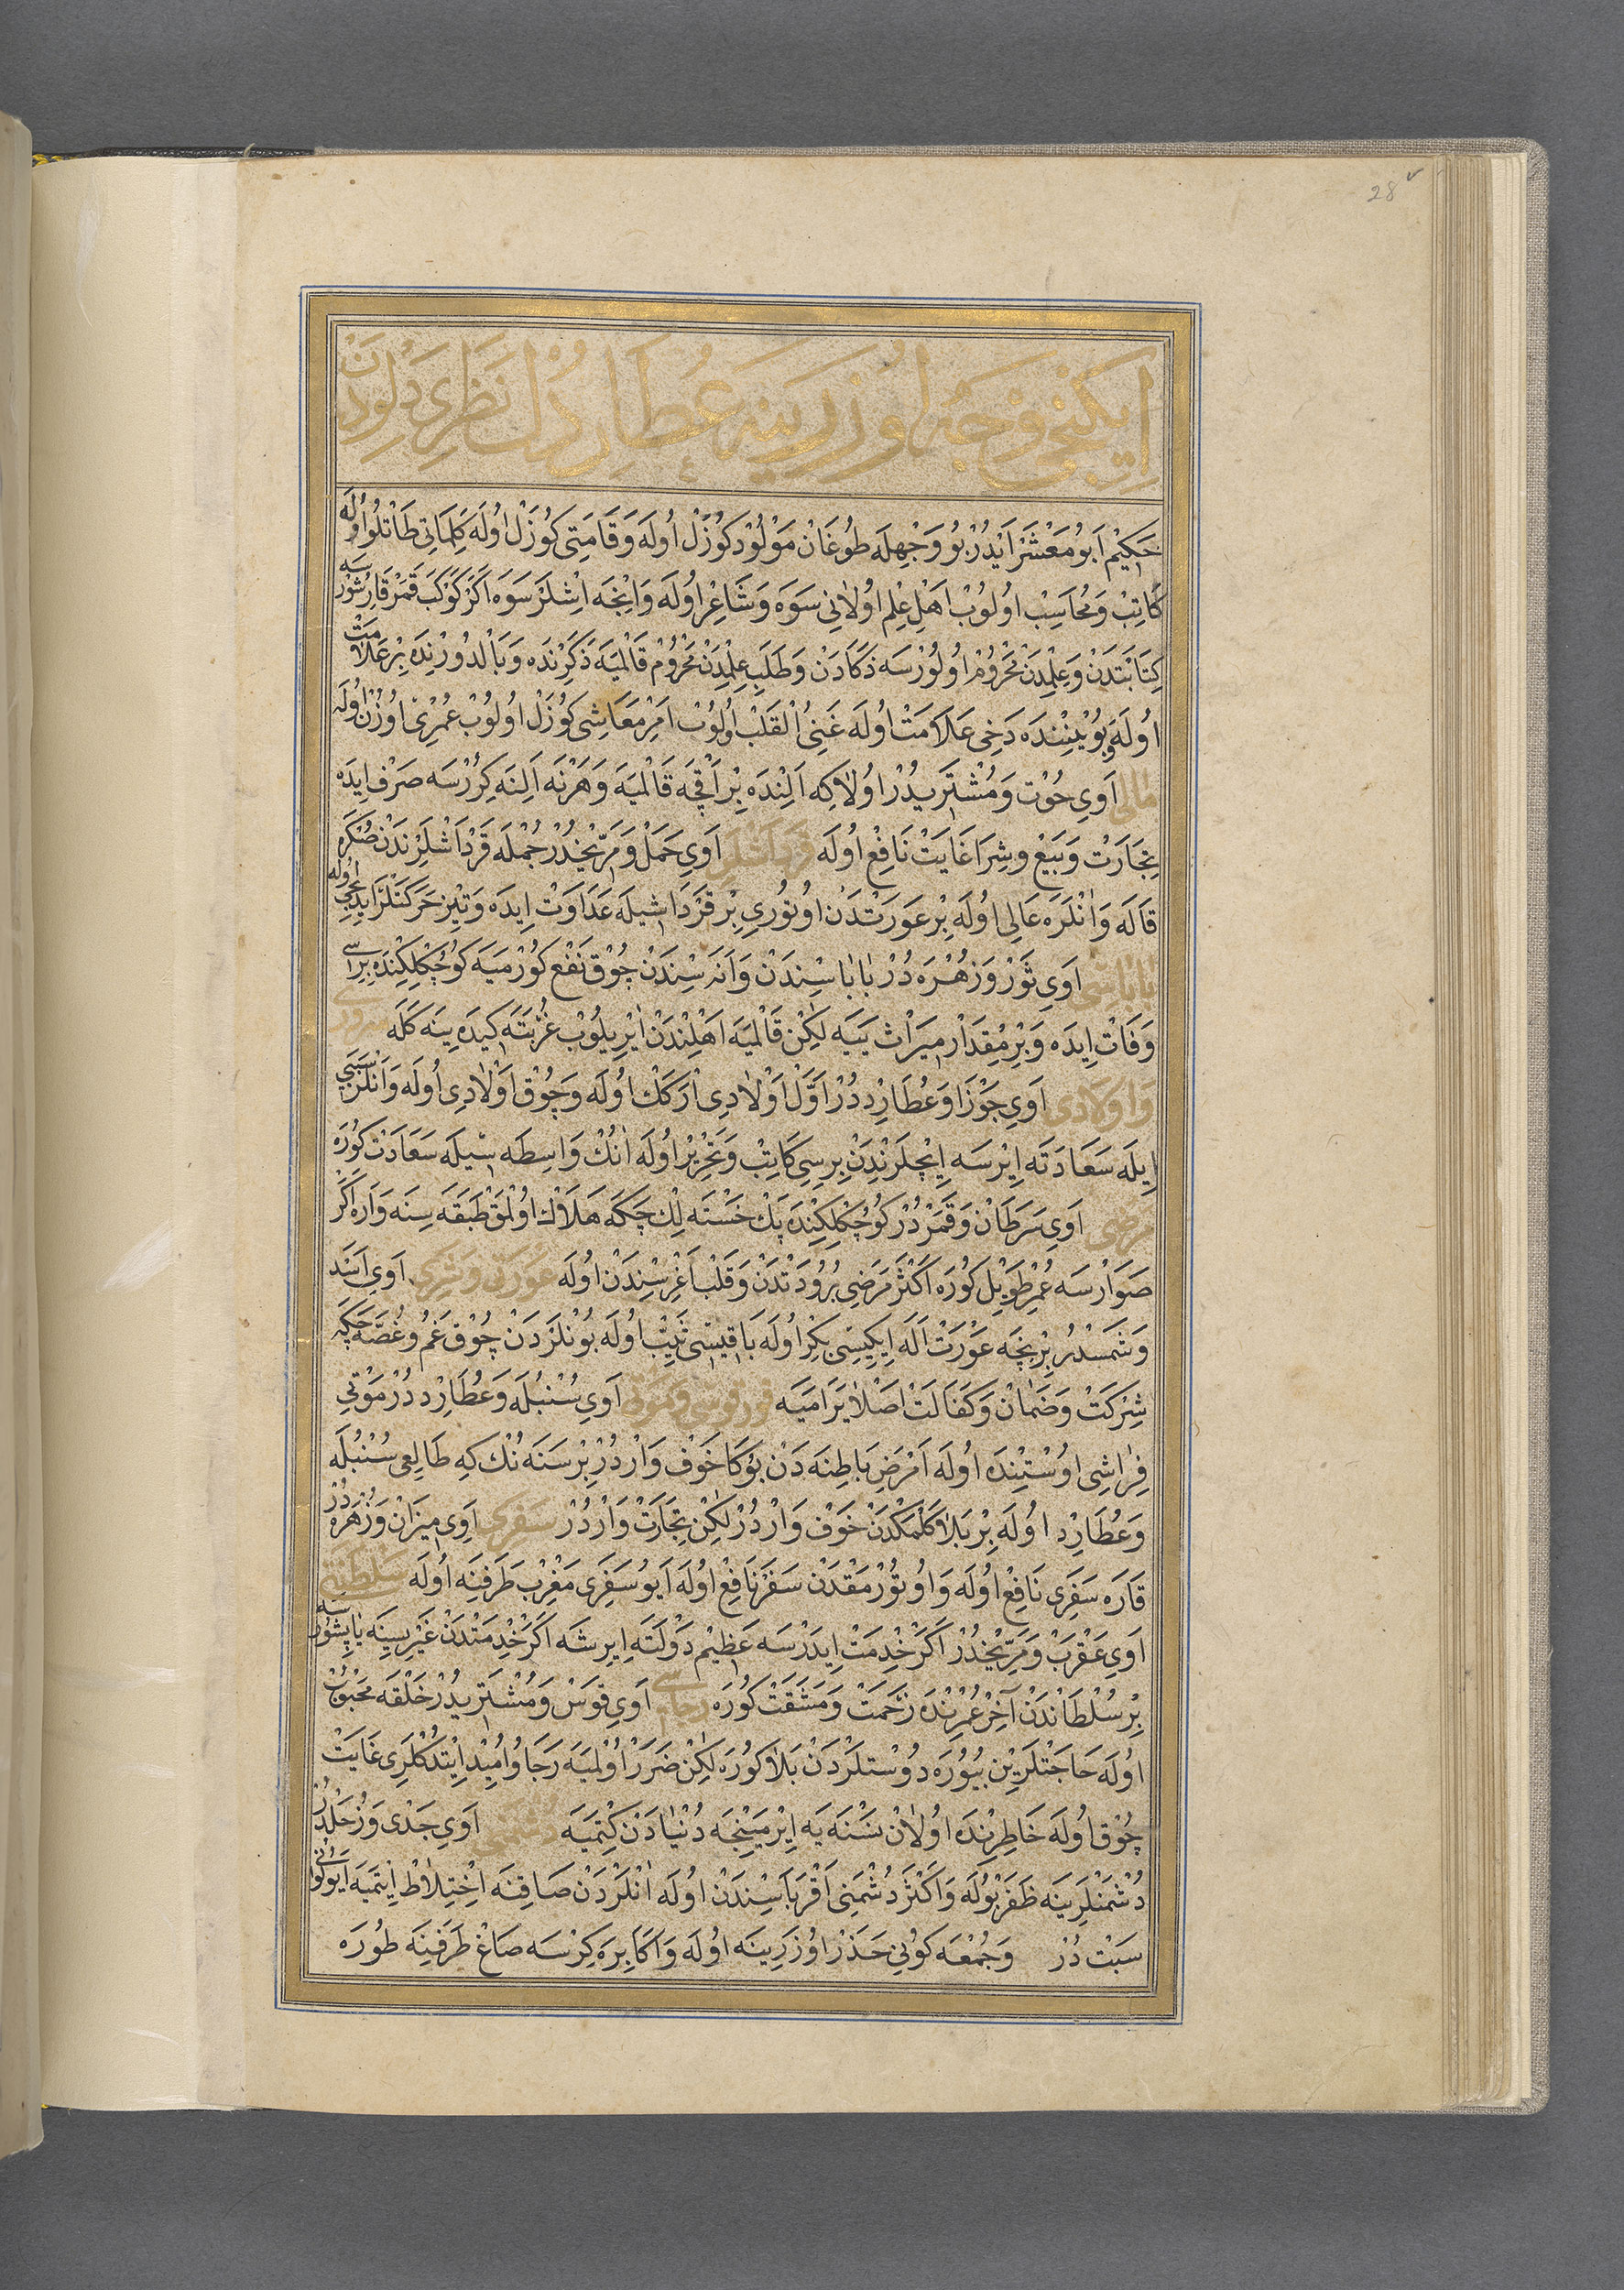 28
ایکنجی وجه اوزرینه عطاردك نظری دلودن
حکیم ابو معشر ایدر بو وجهله طوغان مولود کوزل اوله و قامتی کوزل اوله کلماتی طاتلو اوله
کاتب و محاسب اولوب اهل علم اولانی سوه و شاعر اوله و اینجه اشلر سوه اکر کوکب قمر قارشورسه
کتابتدن و علمدن محروم اولورسه ذکادن و طلب علمدن محروم قالمیه ذکرنده و بالدورنده بر علامت
اوله و بوینینده دخی علامت اوله غنی القلب اولوب امر معاشی کوزل اولوب عمری اوزن اوله
مالی اوی حوت و مشتریدر اولاکه النده بر اقچه قالمیه و هرنه النه کررسه صرف ایده
تجارت و بیع و شرا غایت نافع اوله قرداشلری اوی حمل و مریخدر جمله قرداشلرندن صکره
قاله و انلره عالی اوله بر عورتدن اوتوری بر قرداشیله عداوت ایده و تیز حرکتلر ایدیجی اوله
باباسی اوی ثور و زهره در باباسندن و اناسندن چوق نفع کورمیه کوچکلکنده براسی
وفات ایده و بر مقدار میراث ییه لکن قالمیه اهلندن ایریلوب غربته کیده ینه کله سرور
و اولادی اوی جوزا و عطارددر اول اولادی ارکك اوله و چوق اولادی اوله و انلر سببی
ایله سعادته ایرسه ایچلرندن بریسی کاتب و تحریر اوله انك واسطه سیله سعادت کوره
مرضی اوی سرطان و قمردر کوچکلکنده پك خسته لك چکه هلاك اولمق طبقه سنه واره اکر
صوارسه عمر طویل کوره اکثر مرضی برودتدن و قلب اغریسندن اوله عورتی و شرکی اوی اسد
و شمسدر بر نیجه عورت اله ایکیسی بکر اوله باقیسی ثیب اوله بونلردن چوق غم و غصه چکه
شرکت و ضمان و کفالت اصلا یرامیه قورقوسی و موتی اوی سنبله و عطارددر موتی
فراشی اوستنده اوله امرض باطنه دن بوکا خوف واردر بر سنه نك که طالعی سنبله
و عطارد اوله بر بلا کلمکدن خوف واردر لکن تجارت واردر سفری اوی میزان و زهره در
قاره سفری نافع اوله و اوتورمقدن سفر نافع اوله ایو سفری مغرب طرفنه اوله سلطنتی
اوی عقرب و مریخدر اکر خدمت ایدرسه عظیم دولته ایریشه اکر خدمتدن غیریسینه یاپشورسه
بر سلطاندن آخر عمرنده زحمت و مشقت کوره رجاسی اوی قوس و مشتریدر خلقه محبوب
اوله حاجتلرین بیوره دوستلردن بلا کوره لکن ضرر اولمیه رجا و امید ایتدکلری غایت
چوق اوله خاطرنده اولان نسنه یه ایرمینجه دنیادن کتمیه دشمنی اوی جدی و زحلدر
دشمنلرینه ظفر بوله و اکثر دشمنی اقرباسندن اوله انلردن صاقنه اختلاط ایتمیه ایو کونی
سبت در و جمعه کونی حذر اوزرینه اوله و اکابره کرسه صاغ طرفنه طوره